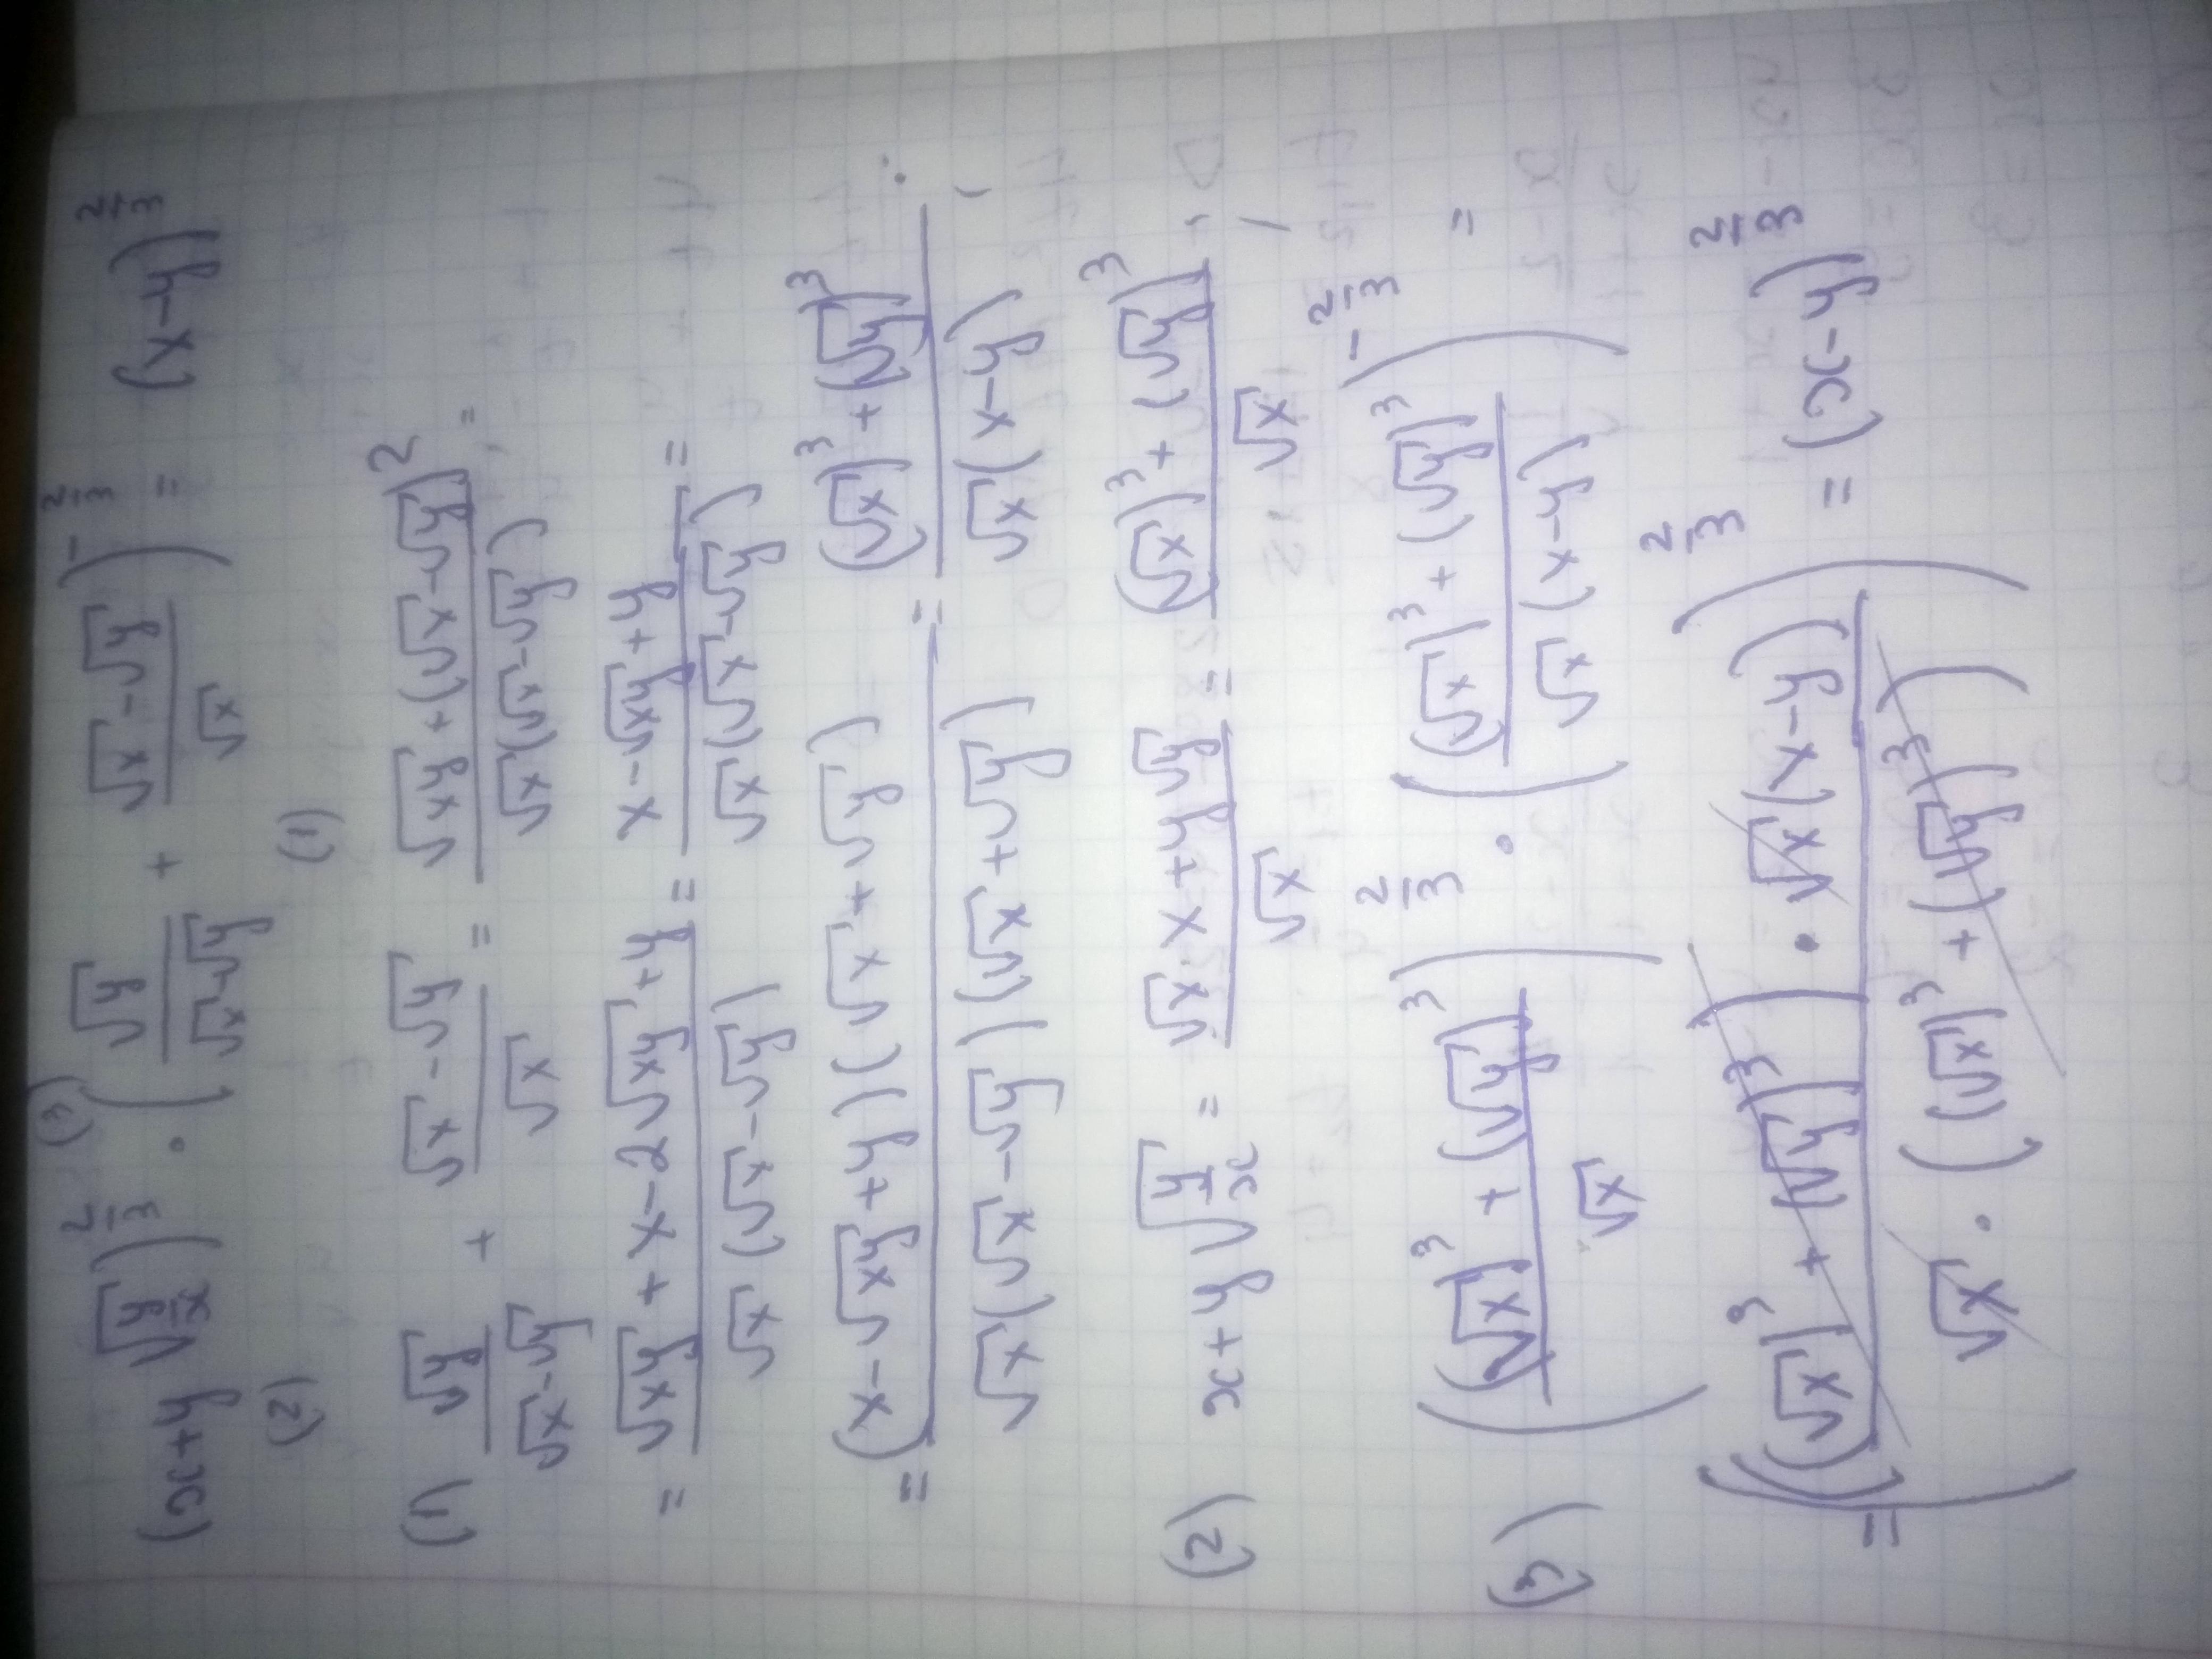 (x+y√(y/x))^(2/3) · (√y/(√x-√y) + (√x-√y)/√x)^(-2/3) = (x-y)^(2/3)
(2) (3) (1)
(1) √y/(√x-√y) + √x-√y/√x = (√xy+(√x-√y)^2)/(√x(√x-√y)) =
= (√xy+x-2√xy+y)/(√x(√x-√y)) = (x-√xy+y)/(√x(√x-√y)) =
= ((x-√xy+y)(√x+√y))/(√x(√x-√y)(√x+√y)) = ((√x)^3+(√y)^3)/(√x(x-y)) ;
(2) x+y√(y/x) = (√x·x+y√y)/√x = ((√x)^3+(√y)^3)/√x ;
(3) (((√x)^3+(√y)^3)/√x)^(2/3) · (((√x)^3+(√y)^3)/(√x(x-y)))^(-2/3) =
= ((((√x)^3+(√y)^3)·√x(x-y))/(√x·((√x)^3+(√y)^3)))^(2/3) = (x-y)^(2/3)